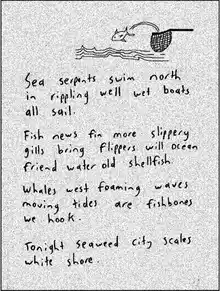 Sea serpents swim north
in rippling well wet boats
all sail.
Fish news fin more slippery
gills bring flippers will ocean
friend water old shellfish.
Whales west foaming waves
moving tides are fishbones
we hook.
Tonight seaweed city scales
white shore.